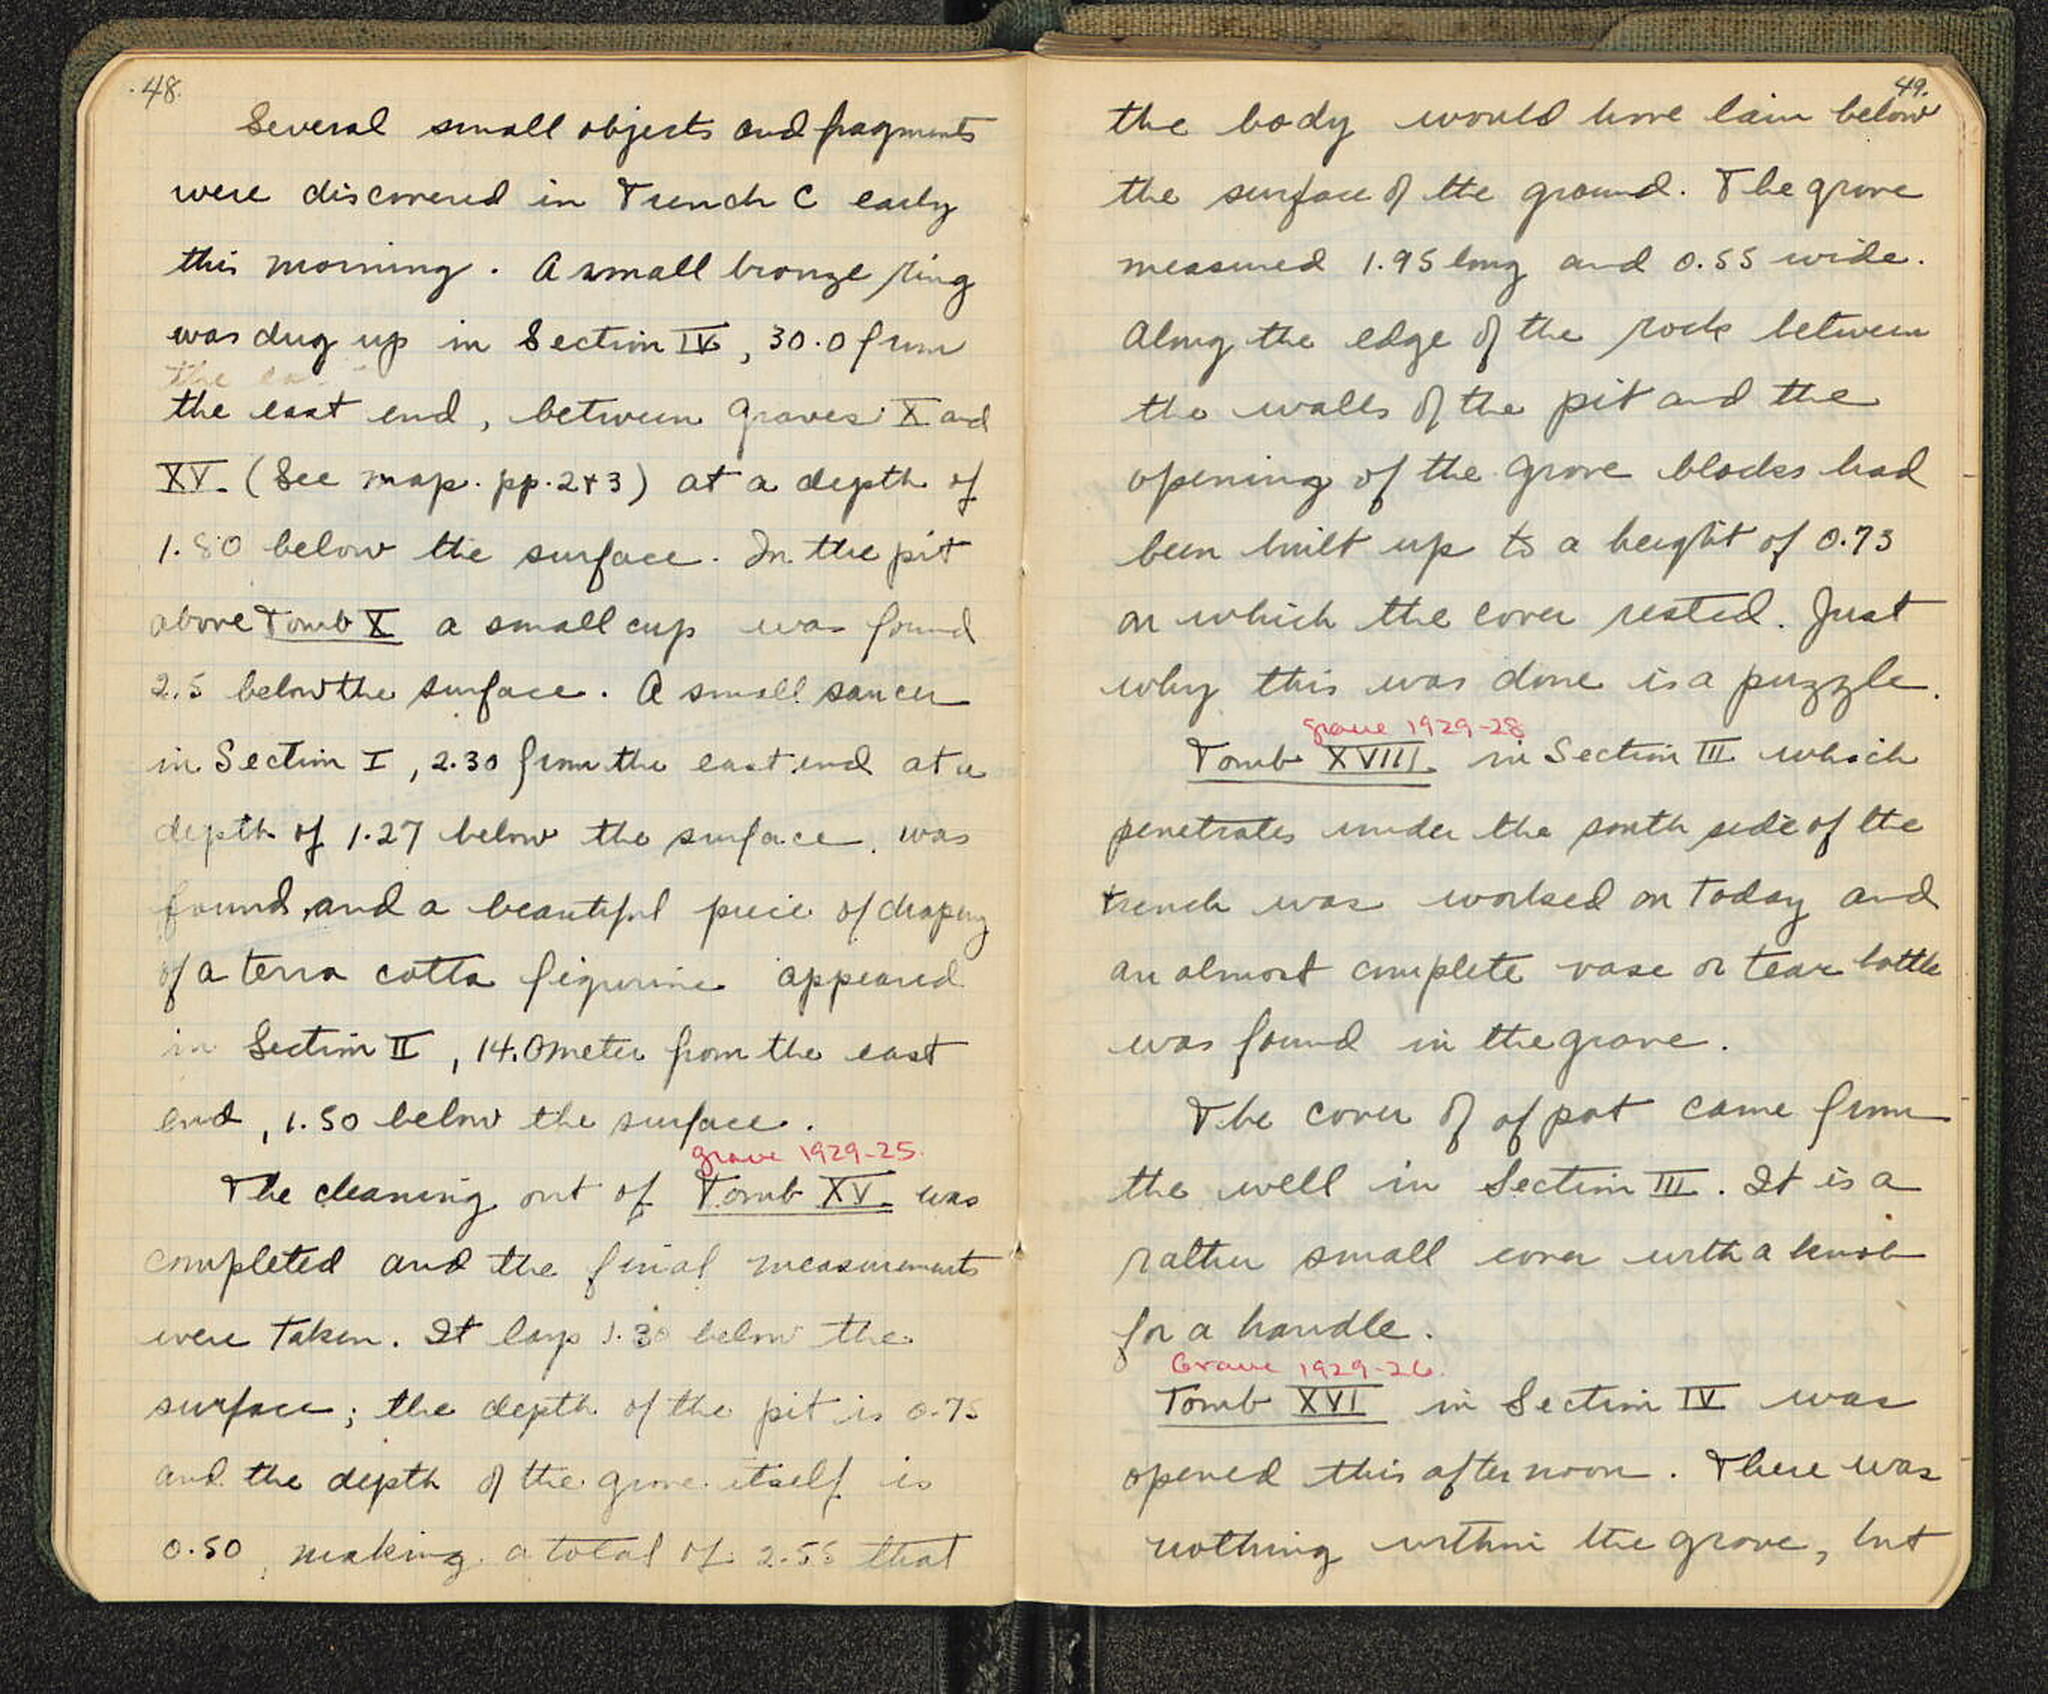 48.
Several small objects and fragments
were discovered in Trench C early
this morning. A small bronze ring
was dug up in Section IV, 30.0 from
the east end, between Graves X and
XV. (See map. pp. 2+3) at a depth of
1.80 below the surface. In the pit
above Tomb X a small cup was found
2.5 below the surface. A small saucer
in Section I, 2.30 from the east end at a
depth of 1.27 below the surface, was
found, and a beautiful piece of drapery
of a terra cotta figurine appeared
in Section II, 14.0 meter from the east
end, 1.50 below the surface.
grave 1929-25.
The cleaning out of Tomb XV. was
completed and the final measurements
were taken. It lays 1.30 below the
surface; the depth of the pit is 0.75
and the depth of the grave itself is
0.50, making a total of 2.55 that
49.
the body would have lain below
the surface of the ground. The grave
measured 1.95 long and 0.55 wide.
Along the edge of the rock between
the walls of the pit and the
opening of the grave blocks had
been built up to a height of 0.73
on which the cover rested. Just
why this was done is a puzzle.
grave 1929-28
Tomb XVIII. in Section III which
penetrates under the south side of the
trench was worked on today and
an almost complete vase or tear bottle
was found in the grave.
The cover of of pot came from
the well in Section III. It is a
rather small cover with a knob
for a handle.
Grave 1929-26.
Tomb XVI in Section IV was
opened this afternoon. There was
nothing within the grave, but